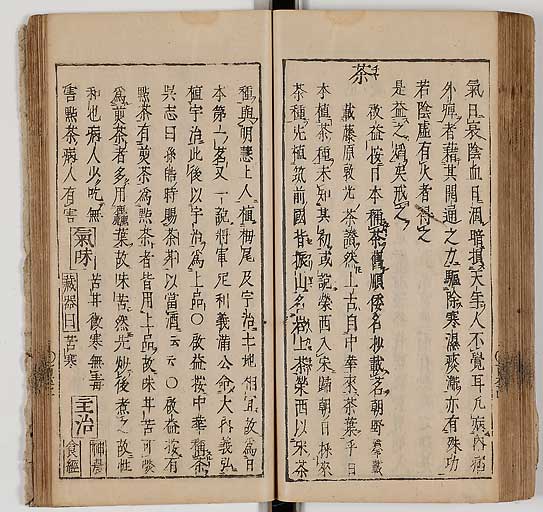 氣日衰陰血日涸暗損天年人不覺耳凡疾內痞
外痺者藉其開通之力驅除寒濕痰滯亦有殊功
若陰虛有火者得之
是益之焰矣戒之
茶
啟益按日本種茶舊順倭名抄載名朝野羣載
載藤原敦光茶讚然上古自中華來茶葉乎日
本植茶種未知其初或說榮西入宋歸朝日採來
茶種先植筑前國背振山名岩上茶榮西以宋茶
種與明惠上人植栂尾及宇治土地相宜故為日
本第一茗又一說將軍足利義滿公命大內義弘
植宇治此後以宇治為上品〇啟益按中華稱茶
吳志曰孫皓時賜茶荈以當酒云云〇啟益按有
點茶有煎茶為點茶者皆用上品故味甘苦可啜
為煎茶者多用麤葉故味苦然先炒後煮之故性
和也病人少吃無
害點茶病人有害
氣味
苦甘微寒無毒
藏器曰苦寒
主治
神農
食經